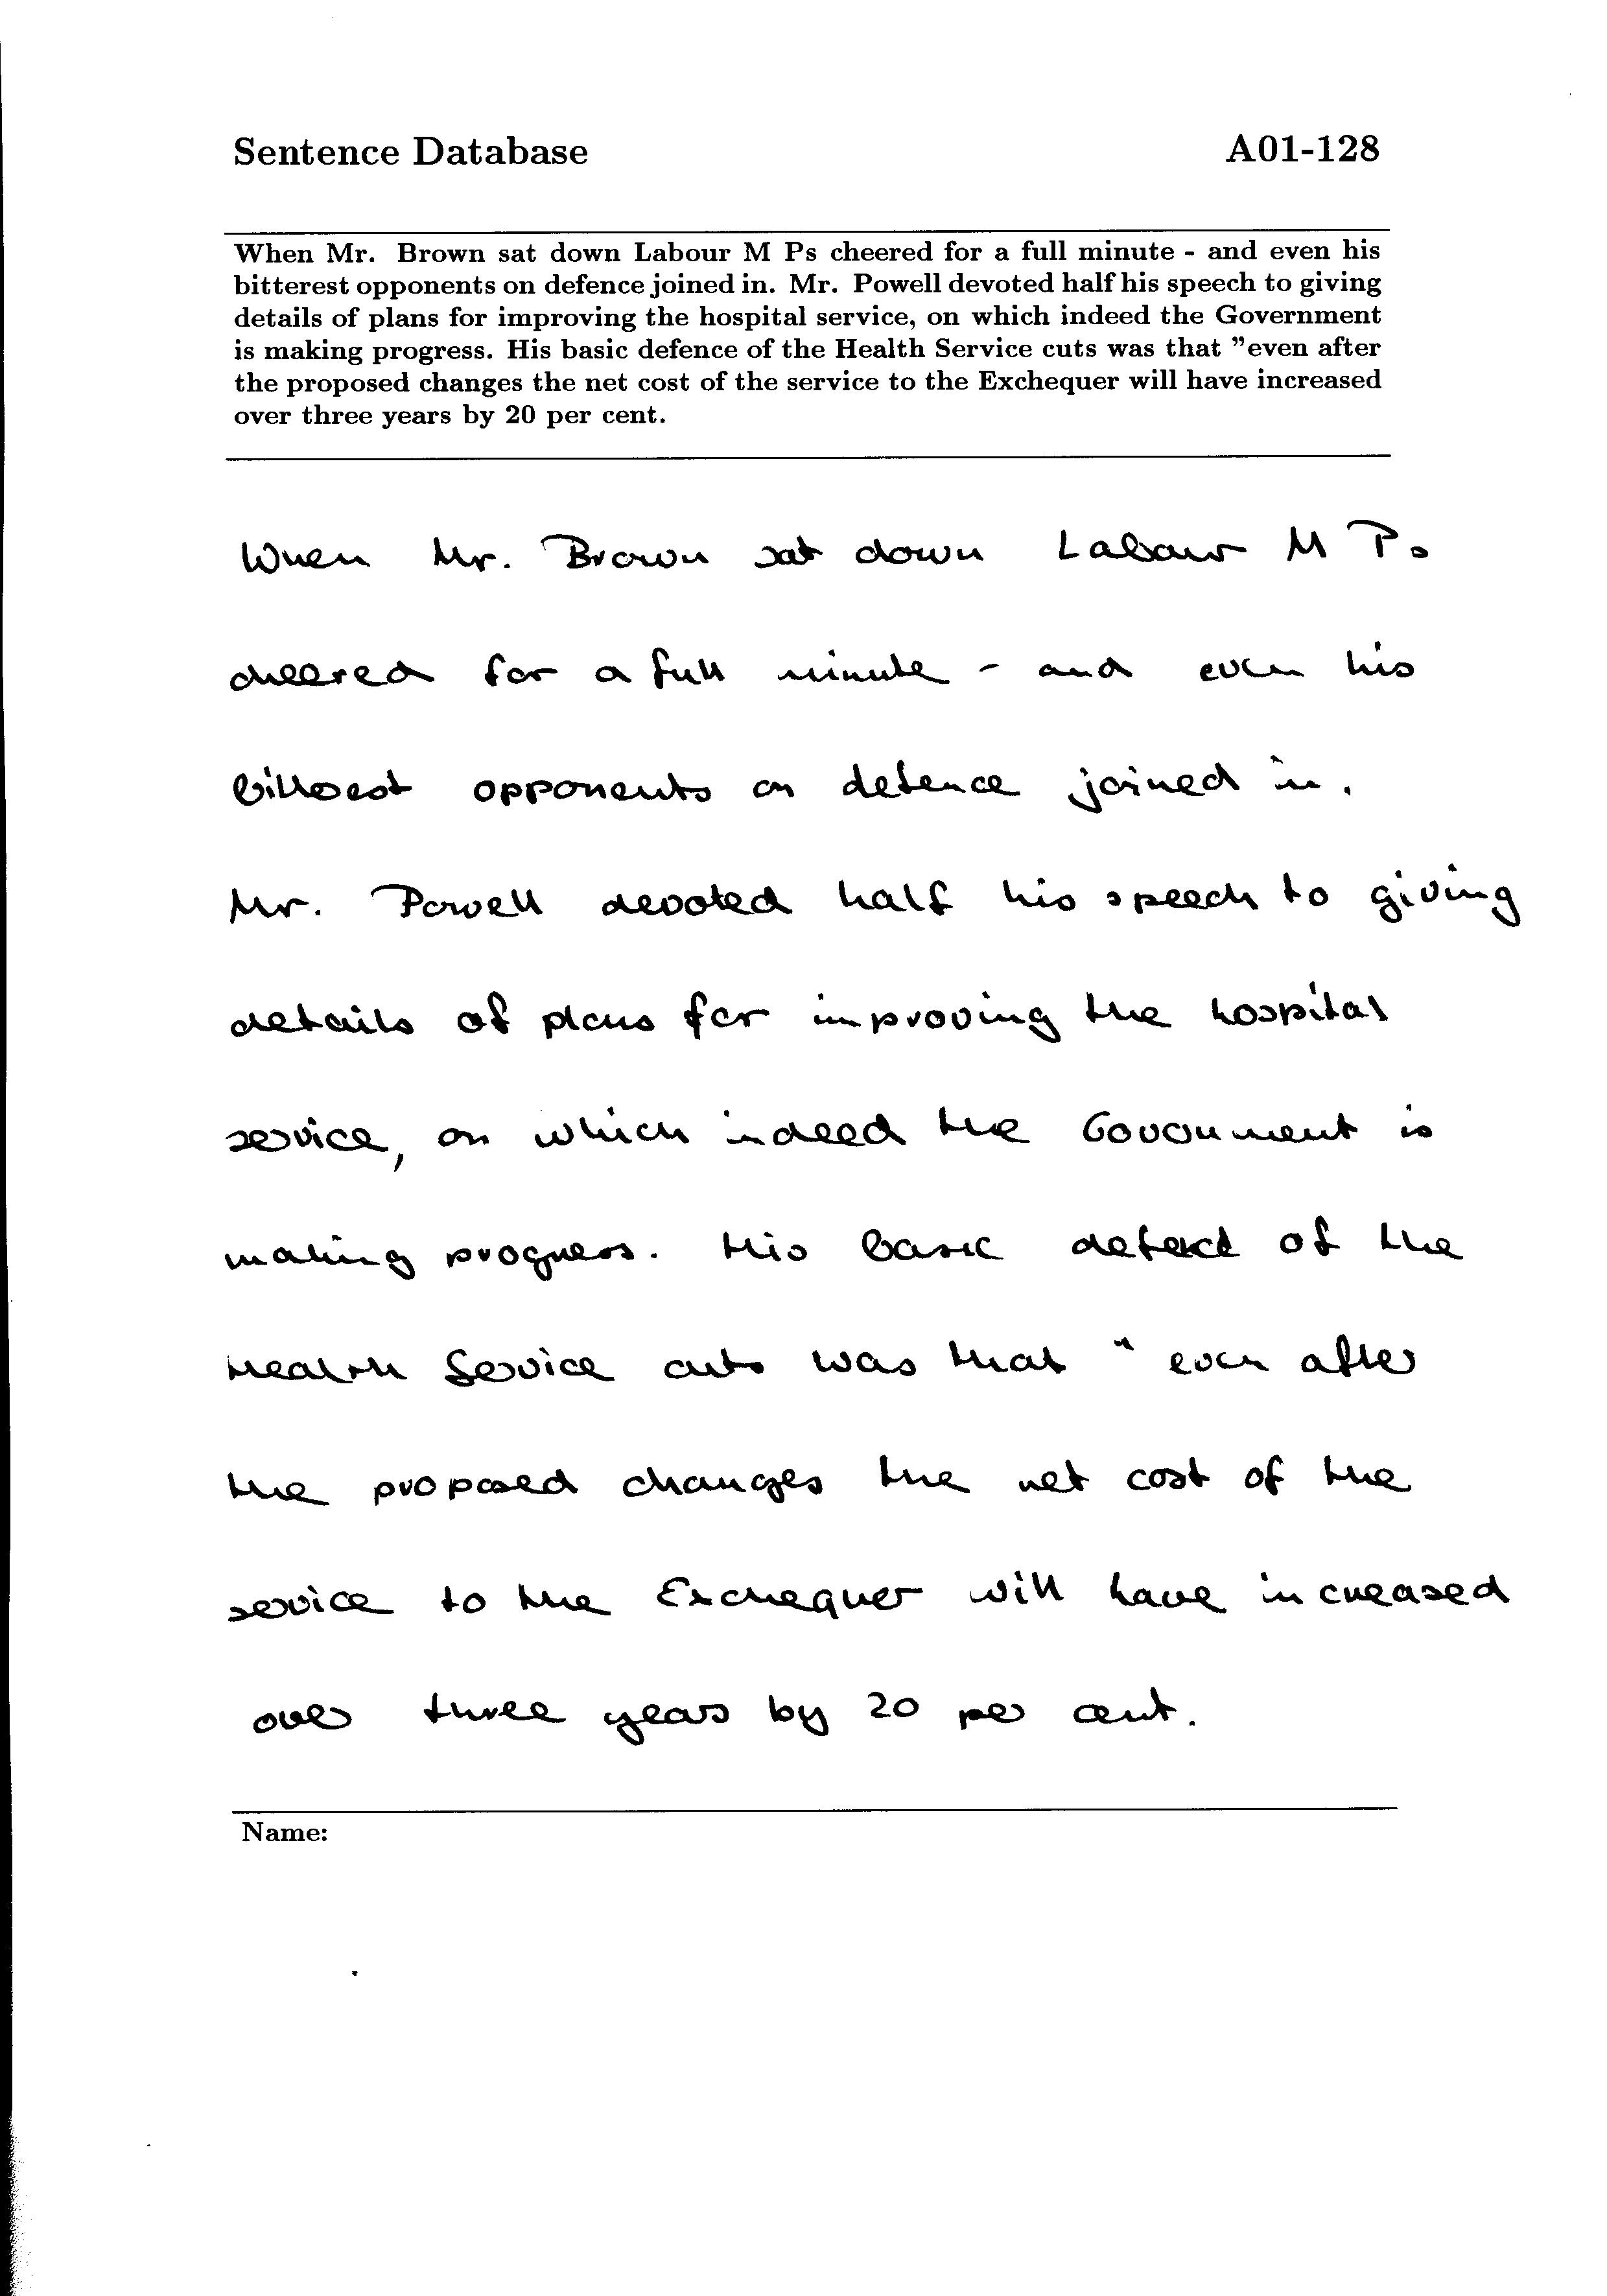 Sentence Database A01-128
When Mr. Brown sat down Labour M Ps cheered for a full minute - and even his
bitterest opponents on defence joined in. Mr. Powell devoted half his speech to giving
details of plans for improving the hospital service, on which indeed the Government
is making progress. His basic defence of the Health Service cuts was that "even after
the proposed changes the net cost of the service to the Exchequer will have increased
over three years by 20 per cent.
When Mr. Brown sat down Labour M Ps
cheered for a full minute - and even his
bitterest opponents on defence joined in.
Mr. Powell devoted half his speech to giving
details of plans for improving the hospital
service, on which indeed the Government is
making progress. His basic defence of the
Health Service cuts was that " even after
the proposed changes the net cost of the
service to the Exchequer will have increased
over three years by 20 per cent.
Name: